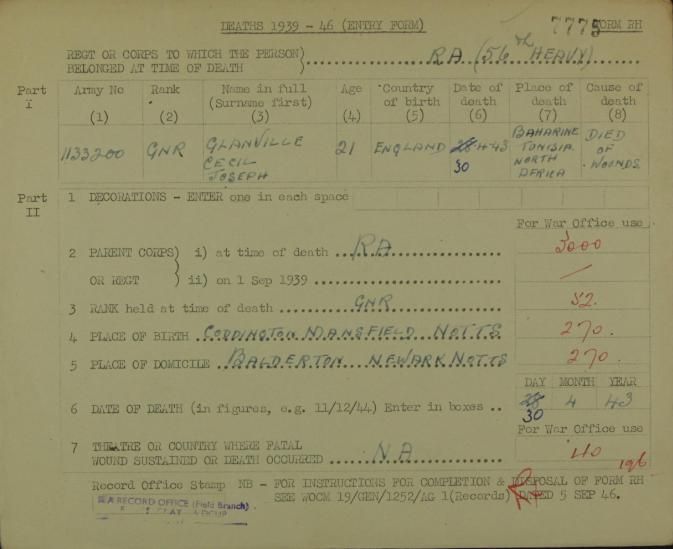 DEATHS 1939 - 46 (ENTRY FORM) 7775 FORM RH
REGT OR CORPS TO WHICH THE PERSON)
BELONGED AT TIME OF DEATH ) RA (56th HEAVY)
Part I
Army No (1) Rank (2) Name in full (Surname first) (3) Age (4) Country of birth (5) Date of death (6) Place of death (7) Cause of death (8)
1133200 GNR GLANVILLE CECIL JOSEPH 21 ENGLAND 28 30 4 43 BAHARINE TUNISIA NORTH AFRICA DIED OF WOUNDS
Part II
1 DECORATIONS - ENTER one in each space
For War Office use
2 PARENT CORPS) i) at time of death RA 5000
OR REGT ) ii) on 1 Sep 1939 /
3 RANK held at time of death GNR 52.
4 PLACE OF BIRTH CODDINGTON MANSFIELD NOTTS 270.
5 PLACE OF DOMICILE BALDERTON NEWARK NOTTS 270.
DAY MONTH YEAR
6 DATE OF DEATH (in figures, e.g. 11/12/44) Enter in boxes .. 28 30 4 43
For War Office use
7 THEATRE OR COUNTRY WHERE FATAL
WOUND SUSTAINED OR DEATH OCCURRED NA 40
196
Record Office Stamp NB - FOR INSTRUCTIONS FOR COMPLETION & DISPOSAL OF FORM RH
SEE WOCM 19/GEN/1252/AG 1(Records) DATED 5 SEP 46.
RA RECORD OFFICE (Field Branch)